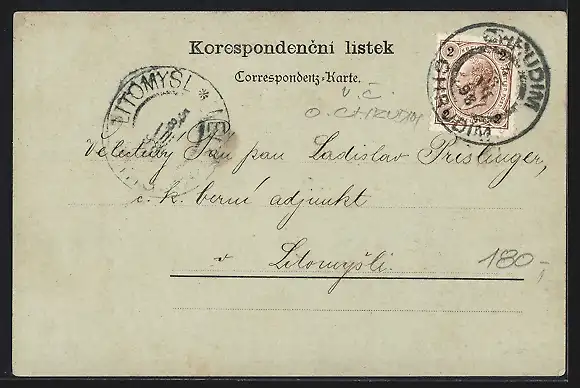 Korespondenční lístek
Correspondenz-Karte.
2
CHRUDIM
CHRUDIM
98
LITOMYŠL *
V. Č.
O. CHRUDIM
Velectěný Pán pan Ladislav Preslinger,
c. k. berní adjunkt
v Litomyšli.
180,-